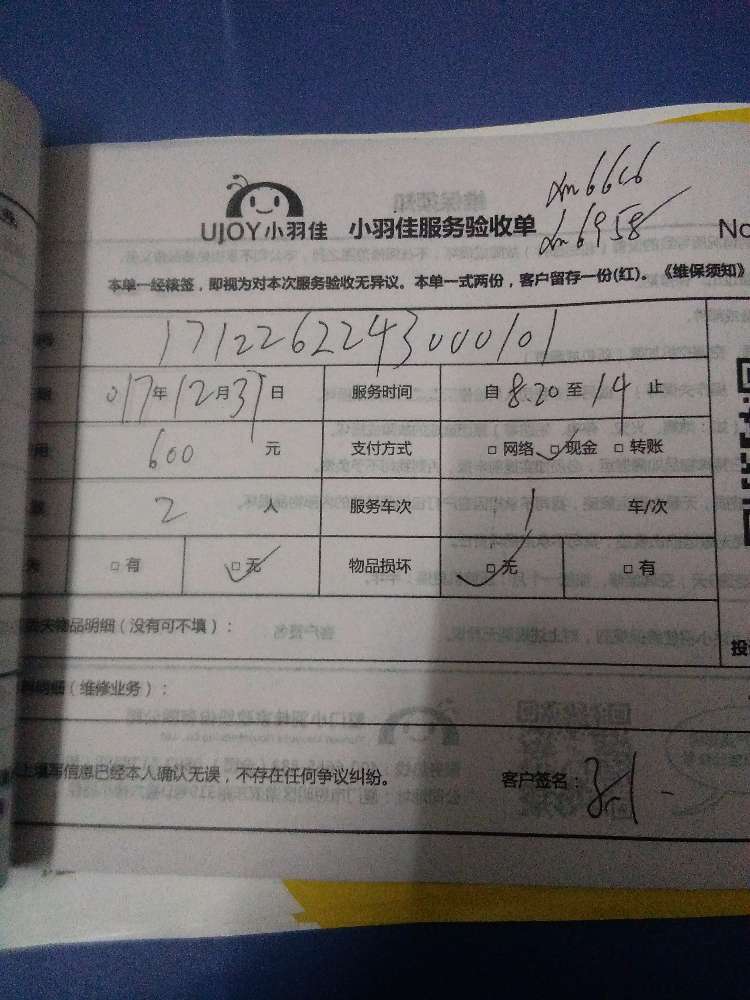 xm6606
xm6958
UJOY小羽佳 小羽佳服务验收单 No
本单一经核签，即视为对本次服务验收无异议。本单一式两份，客户留存一份(红)。《维保须知》
1712262243000101
017年12月31日 服务时间 自8:20至14止
600元 支付方式 □网络 □现金 □转账
2人 服务车次 1车/次
□有 □无 物品损坏 □无 □有
物品明细（没有可不填）：
明细（维修业务）：
上填写信息已经本人确认无误，不存在任何争议纠纷。 客户签名：